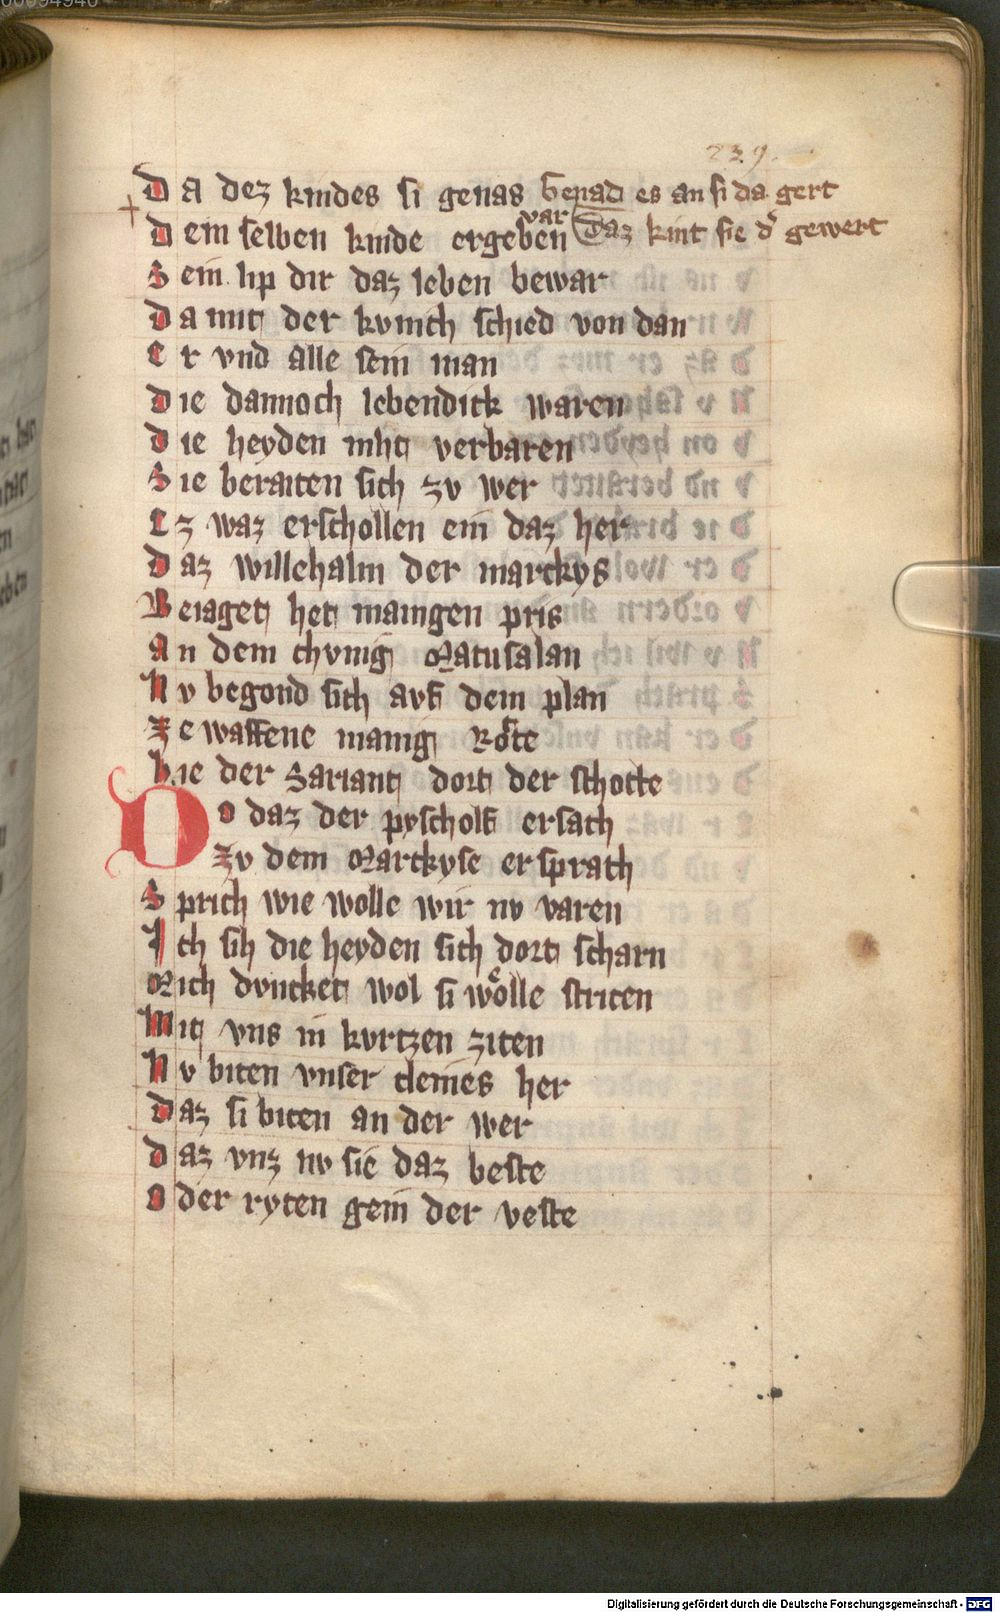 00094946
239.
Da dez kindes si genas Genad es an si da gert
Dem selben kinde ergeben var Daz kint sie d᾽ gewert
Sein lip dir daz leben bewar
Da mit der kvnich schied von dan
Er vnd alle sein man
Die dannoch lebendick waren
Die heyden niht verbaren
Sie beraiten sich zv wer
Ez waz erschollen ein daz her
Daz willehalm der marckys
Beiaget het manigen pris
An dem chvnig Matusalan
Nv begond sich avf dem plan
Ze waffene manig Rote
Hie der Sariant dort der schotte
Do daz der pyscholf ersach
Zv dem Marckyse er sprach
Sprich wie wolle wir nv varen
Ich sih die heyden sich dort scharn
Mich dvncket wol si woͤlle striten
Mit vns in kvrtzen ziten
Nv biten vnser cleines her
Daz si biten an der wer
Daz vnz nv sie daz beste
Oder ryten gein der veste
Digitalisierung gefördert durch die Deutsche Forschungsgemeinschaft - DFG